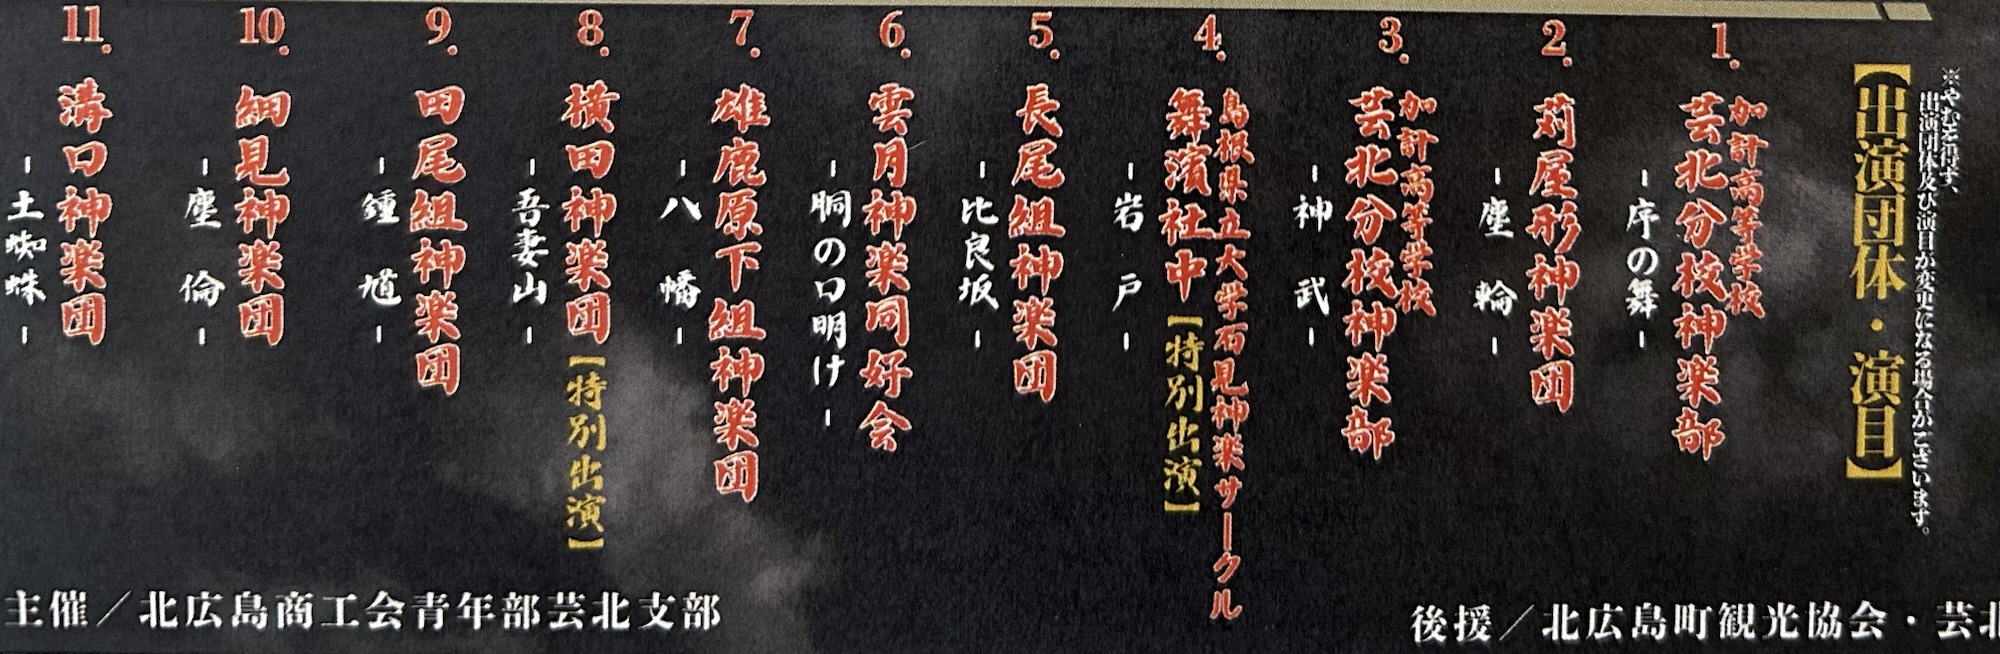 ※やむを得ず、
出演団体及び演目が変更になる場合がございます。
【出演団体・演目】
1.
加計高等学校
芸北分校神楽部
-序の舞-
2.
苅屋形神楽団
-塵輪-
3.
加計高等学校
芸北分校神楽部
-神武-
4.
島根県立大学石見神楽サークル
舞濱社中【特別出演】
-岩戸-
5.
長尾組神楽団
-比良坂-
6.
雲月神楽同好会
-胴の口明け-
7.
雄鹿原下組神楽団
-八幡-
8.
横田神楽団【特別出演】
-吾妻山-
9.
田尾組神楽団
-鍾馗-
10.
細見神楽団
-塵倫-
11.
溝口神楽団
-土蜘蛛-
後援／北広島町観光協会・芸北
主催／北広島商工会青年部芸北支部